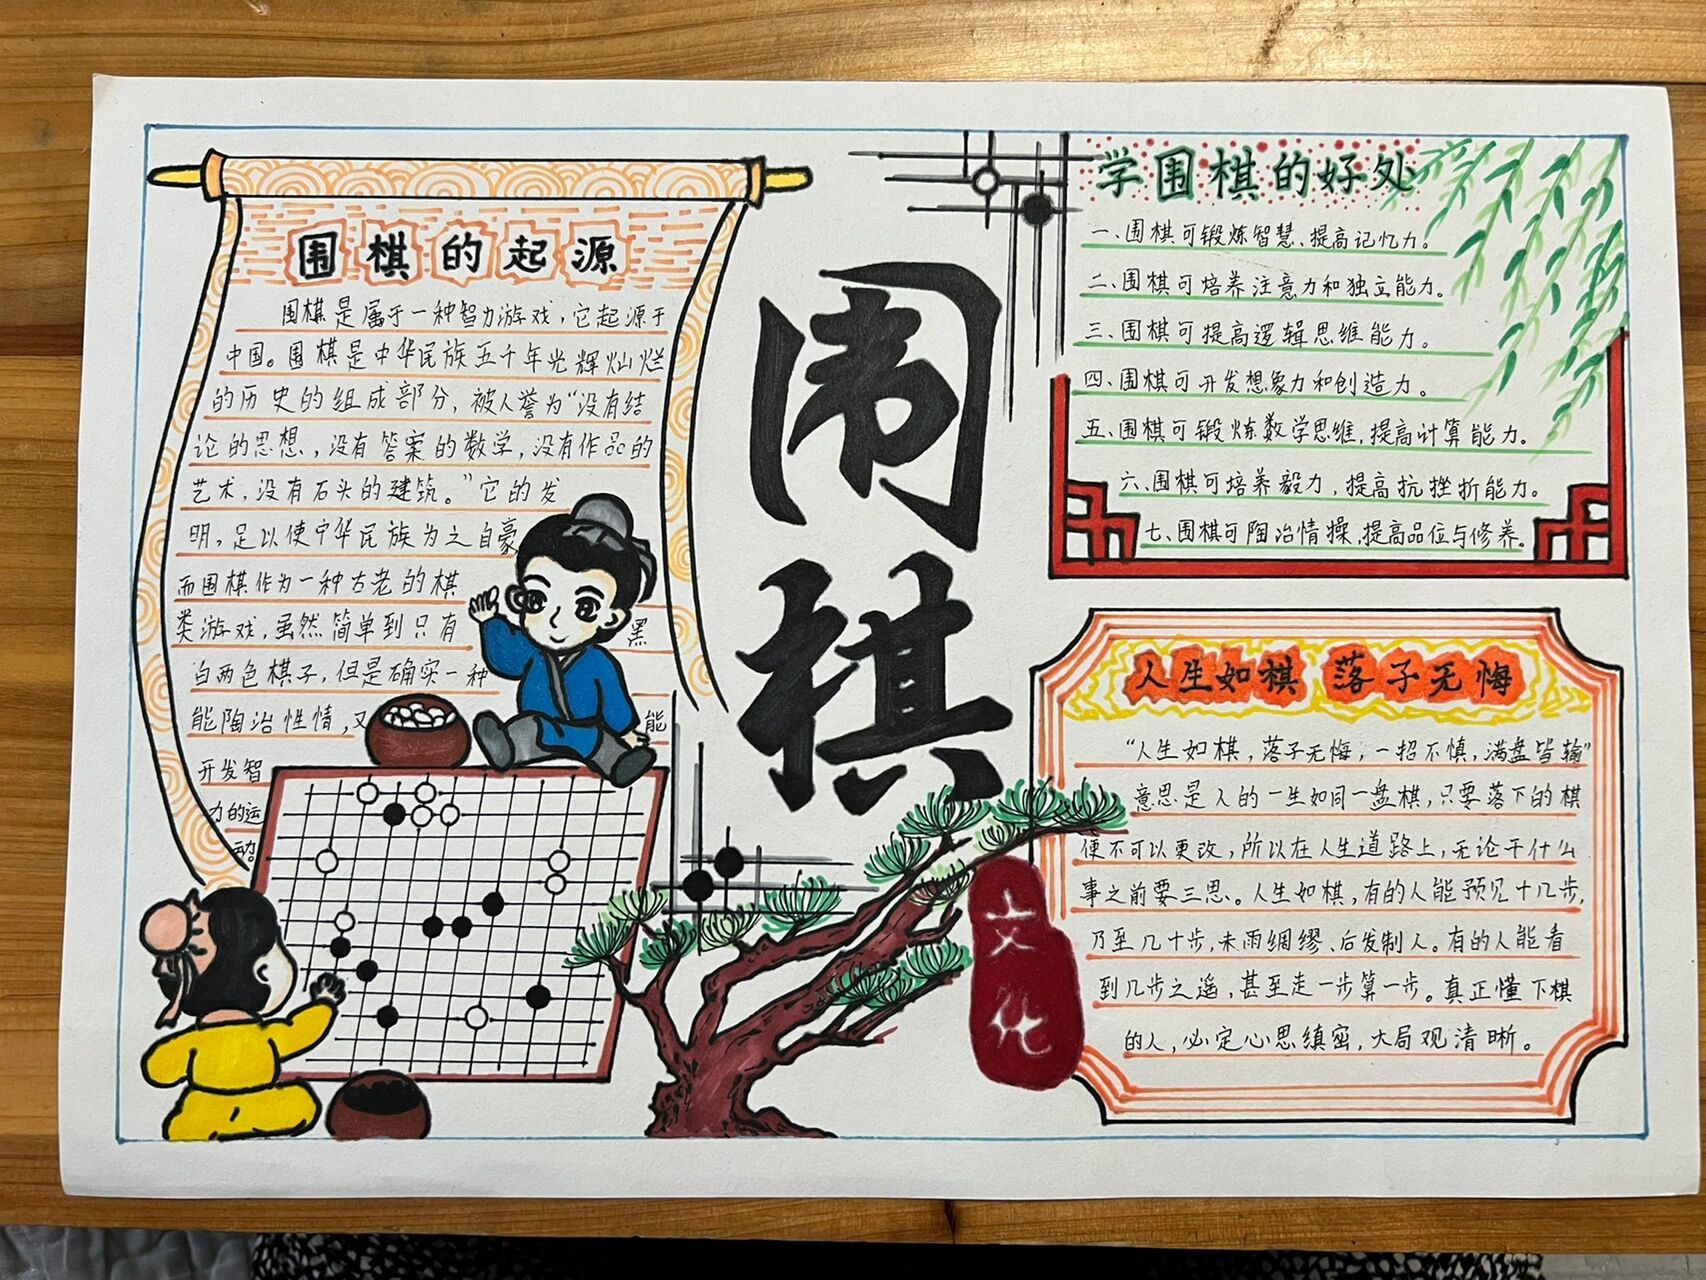 围棋的起源
围棋是属于一种智力游戏，它起源于
中国。围棋是中华民族五千年光辉灿烂
的历史的组成部分，被人誉为“没有结
论的思想，没有答案的数学，没有作品的
艺术，没有石头的建筑。”它的发
明，足以使中华民族为之自豪
而围棋作为一种古老的棋
类游戏，虽然简单到只有 黑
白两色棋子，但是确实一种
能陶冶性情，又 能
开发智
力的运
动。
围
棋
文
化
学围棋的好处
一、围棋可锻炼智慧、提高记忆力。
二、围棋可培养注意力和独立能力。
三、围棋可提高逻辑思维能力。
四、围棋可开发想象力和创造力。
五、围棋可锻炼数学思维，提高计算能力。
六、围棋可培养毅力，提高抗挫折能力。
七、围棋可陶冶情操，提高品位与修养。
人生如棋 落子无悔
“人生如棋，落子无悔，一招不慎，满盘皆输”
意思是人的一生如同一盘棋，只要落下的棋
便不可以更改，所以在人生道路上，无论干什么
事之前要三思。人生如棋，有的人能预见十几步，
乃至几十步，未雨绸缪、后发制人。有的人能看
到几步之遥，甚至走一步算一步。真正懂下棋
的人，必定心思缜密，大局观清晰。